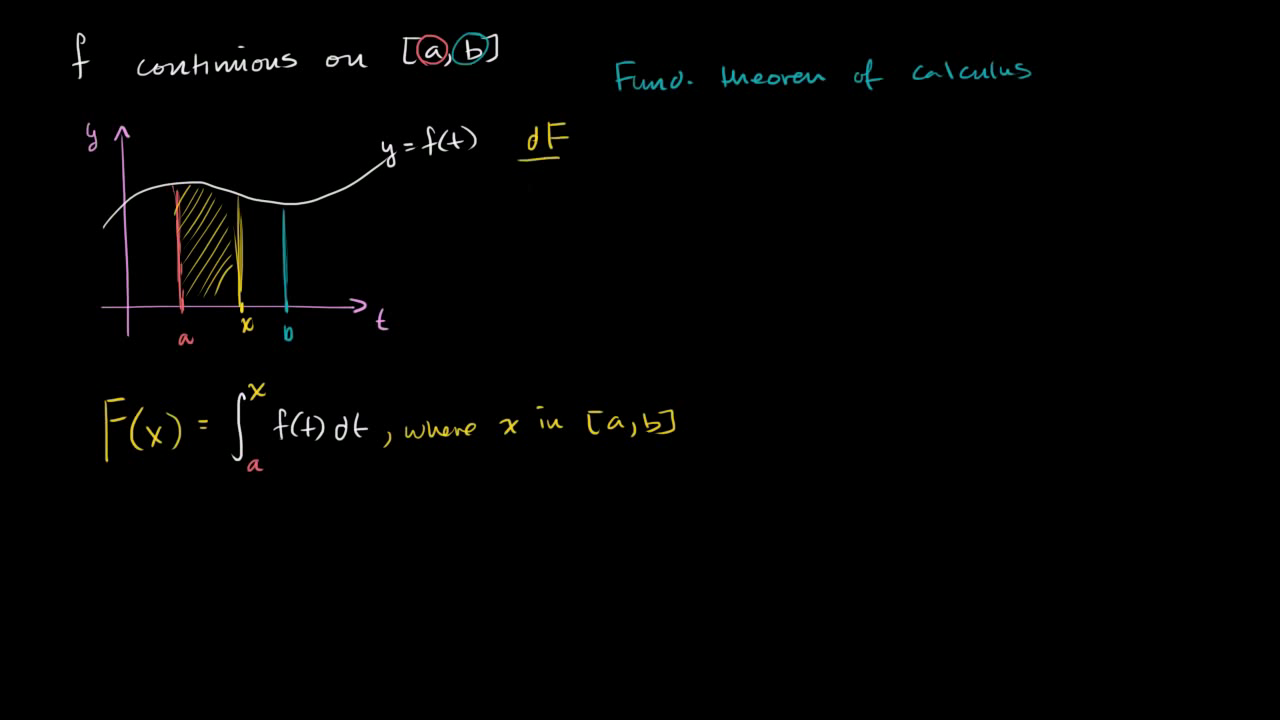 f continuous on [a, b]
Fund. theorem of calculus
y
y = f(t)
dF
a
x
b
t
F(x) = ∫ₐˣ f(t) dt, where x in [a, b]